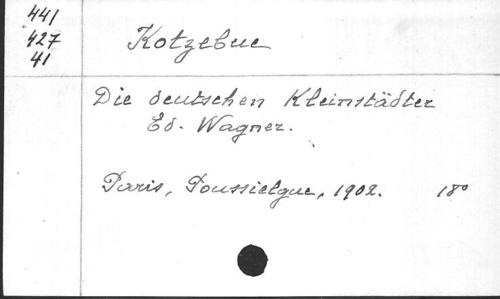 441
427
41
Kotzebue
Die deutschen Kleinstädter
Ed. Wagner.
Paris, Poussielgue, 1902. 18°